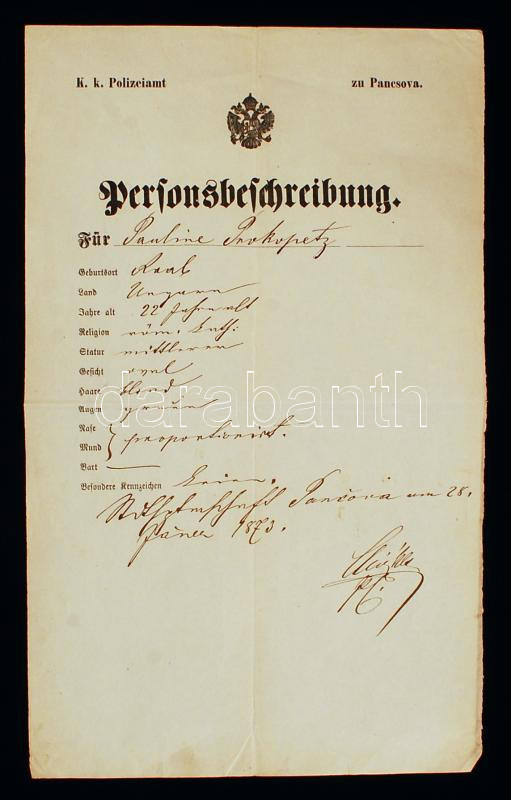 K. k. Polizeiamt zu Pancsova.
Personsbeschreibung.
Für Pauline Prokopetz
Geburtsort Raab
Land Ungarn
Jahre alt 22 Jahre alt
Religion röm. kath:
Statur mittlerer
Gesicht oval
Haare blond
Augen
Nase
Mund proportionirt.
Bart —
Besondere Kennzeichen keine.
Pancsova am 28.
Jäner 1873.
darabanth